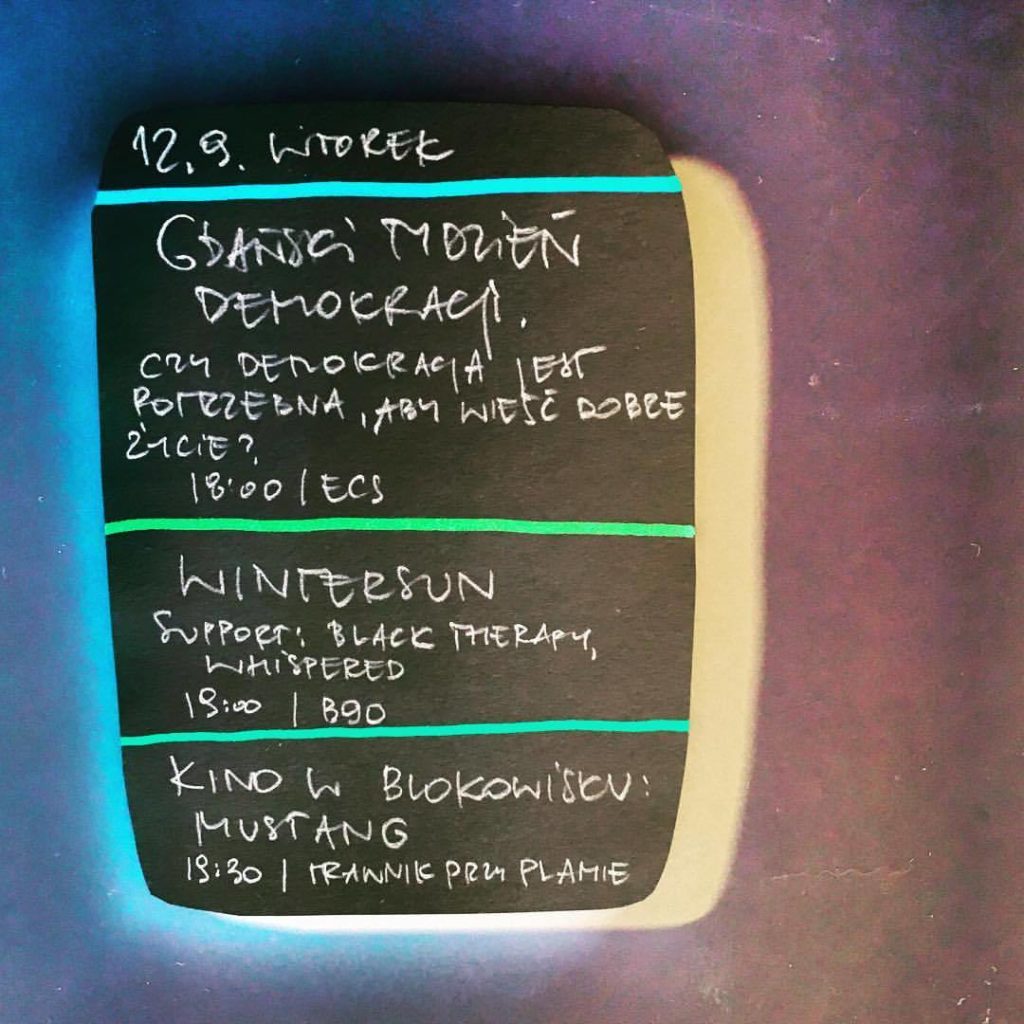 12.9. WTOREK
GDAŃSKI TYDZIEŃ
DEMOKRACJI.
CZY DEMOKRACJA JEST
POTRZEBNA, ABY WIEŚĆ DOBRE
ŻYCIE?
18:00 | ECS
WINTERSUN
SUPPORT: BLACK THERAPY,
WHISPERED
19:00 | B90
KINO W BLOKOWISKU:
MUSTANG
19:30 | TRAWNIK PRZY PLAMIE